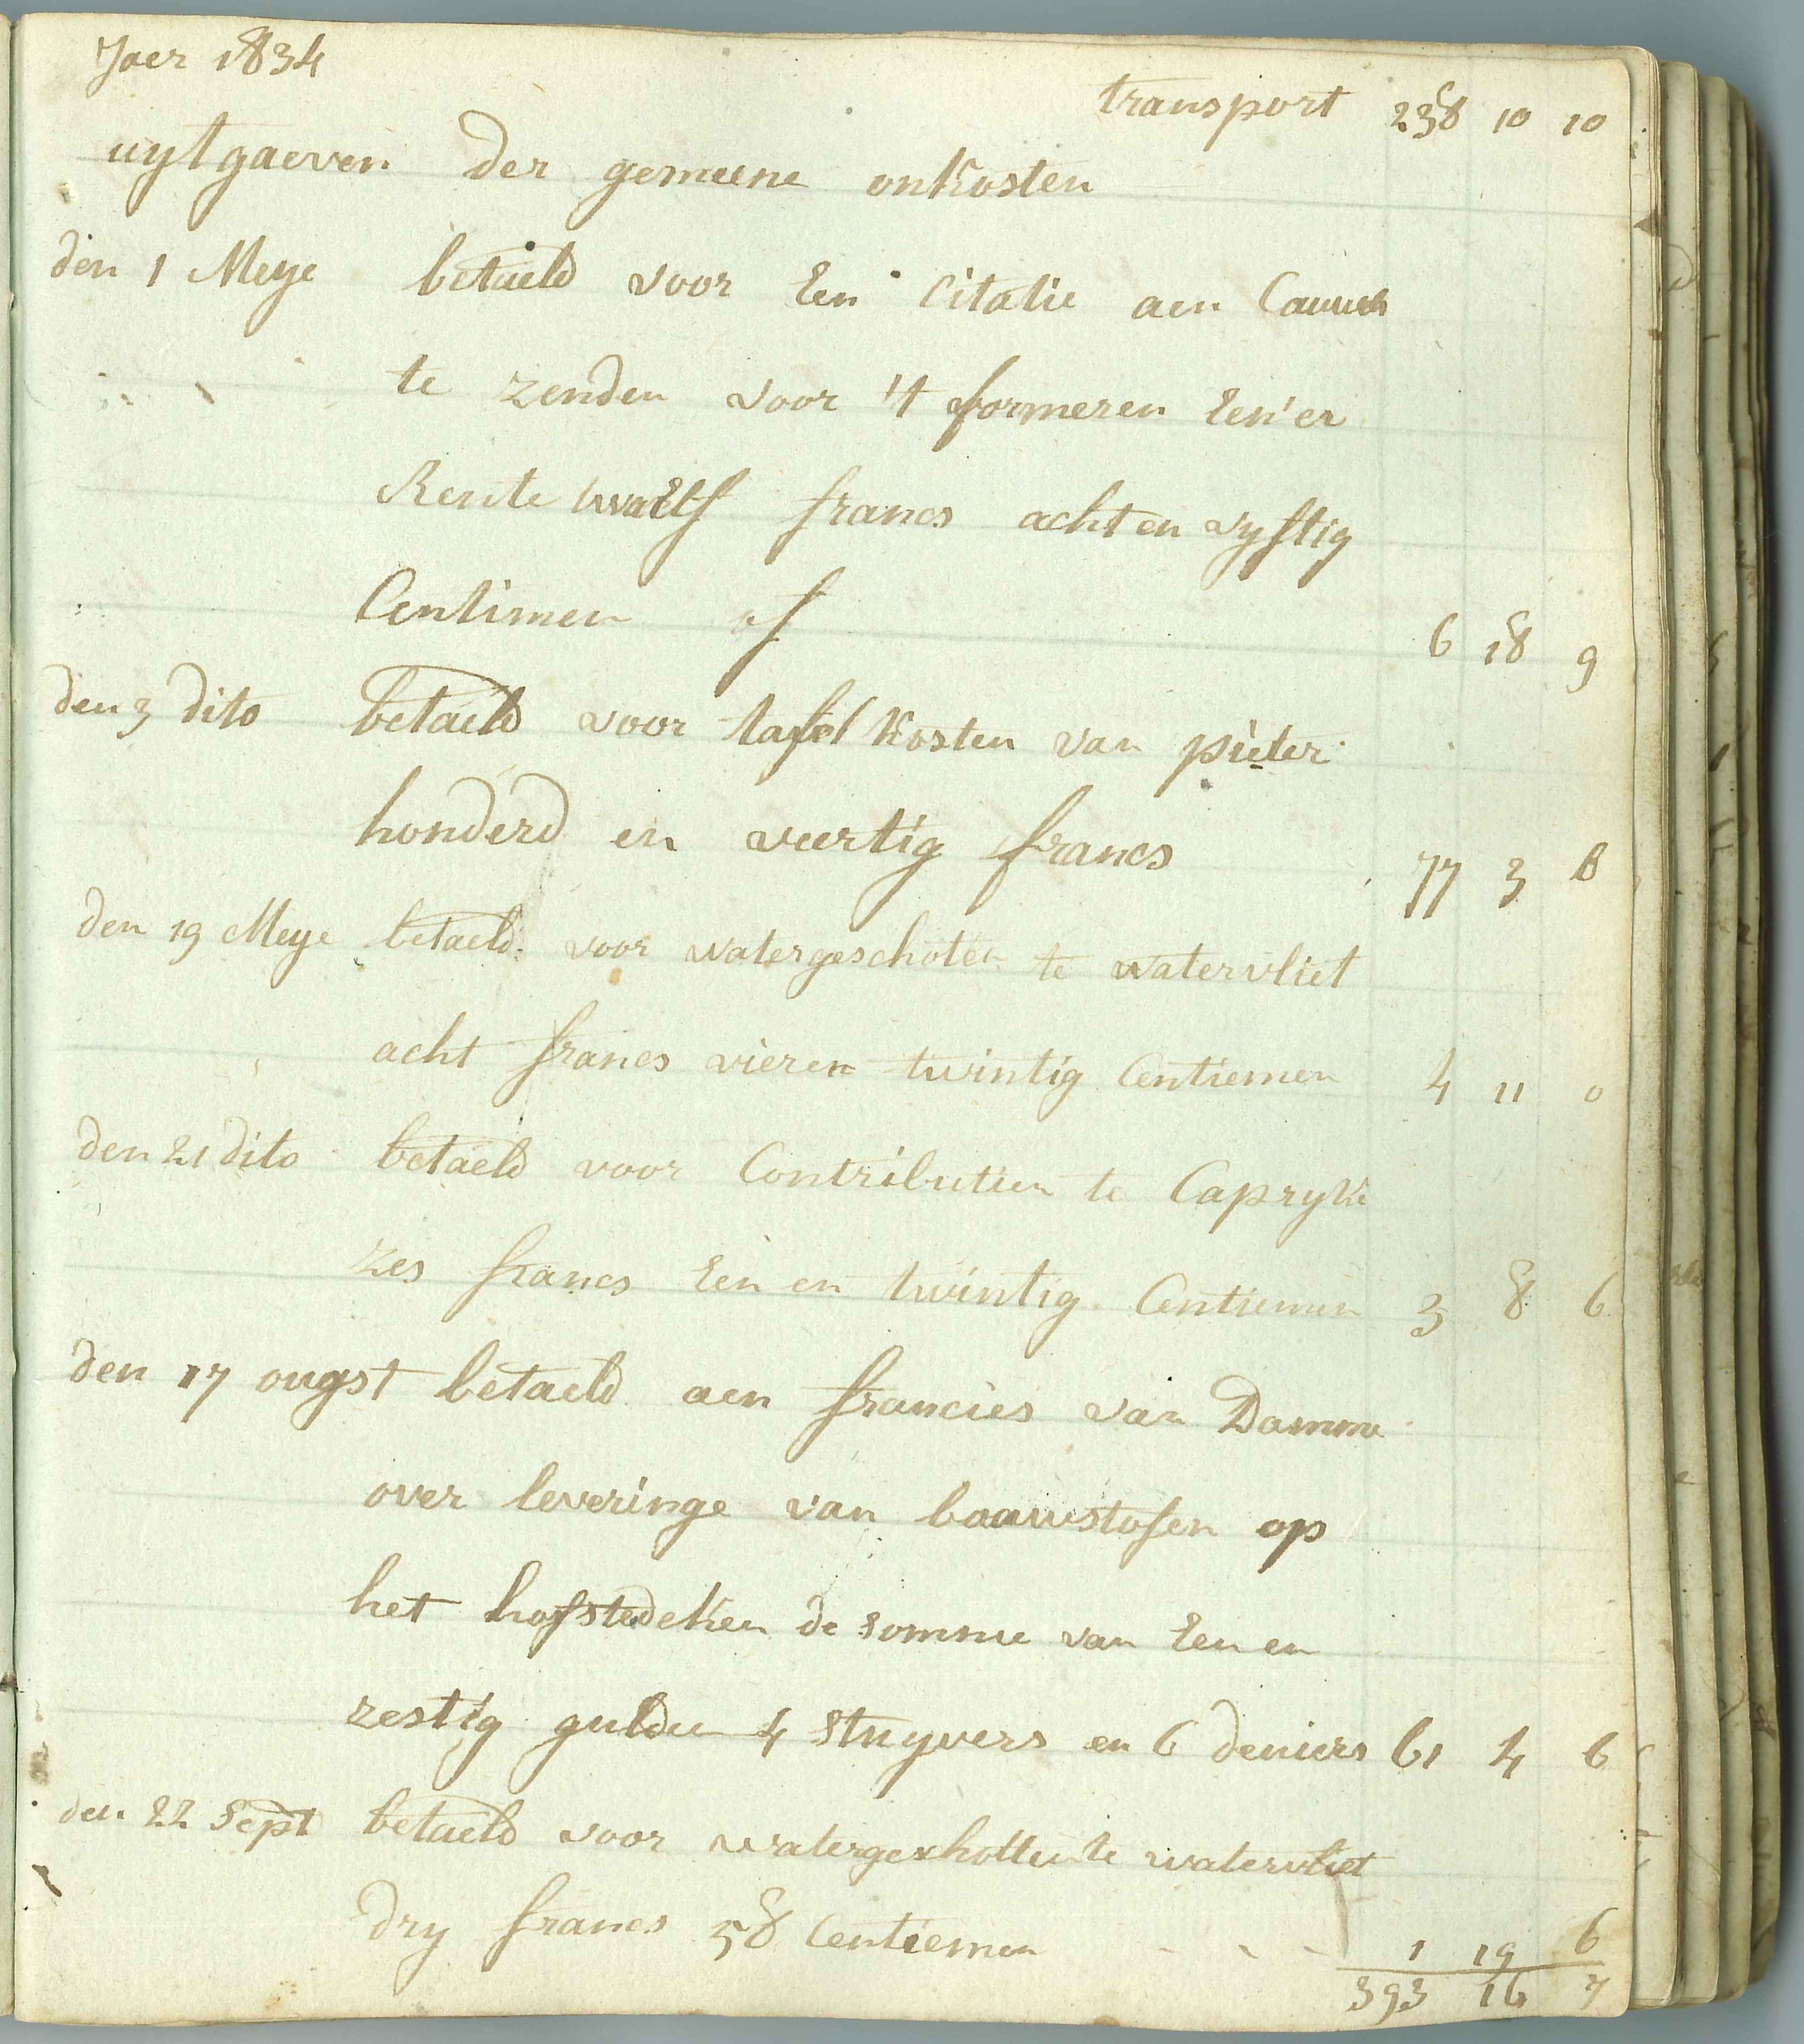 Jaer 1834
transport 238 10 10
uytgaeven der gemeene onkosten
den 1 Meye betaeld voor Een Citatie aen Cauwels
te zenden voor 't formeren Een'er
Rente twaelf francs acht en vyftig
Centimen of 6 18 9
den 3 dito betaeld voor tafel kosten van pieter
honderd en veertig francs 77 3 8
den 19 Meye betaeld voor watergeschoten te watervliet
acht francs vieren twintig Centiemen 4 11 0
den 21 dito betaeld voor Contributien te Capryke
zes francs Een en twintig Centiemen 3 8 6
den 17 ougst betaeld aen francies van Damme
over leveringe van baauwstofen op
het hofstedeken de somme van Een en
zestig gulden 4 Stuyvers en 6 deniers 61 4 6
den 22 Sept betaeld voor watergeschotten te watervliet
dry francs 58 Centiemen - - - 1 19 6
393 16 7